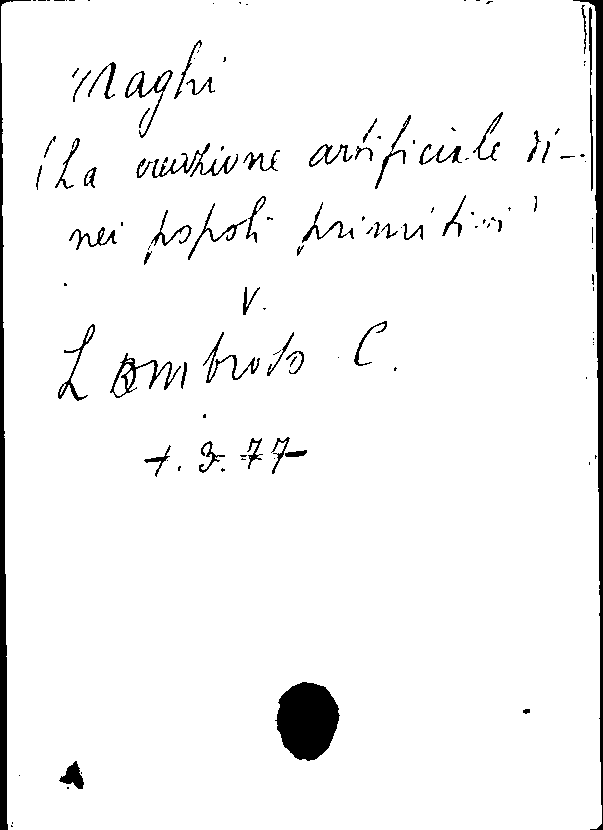 Maghi
(La creazione artificiale di -
nei popoli primitivi)
V.
Lombroso C.
1.3.77